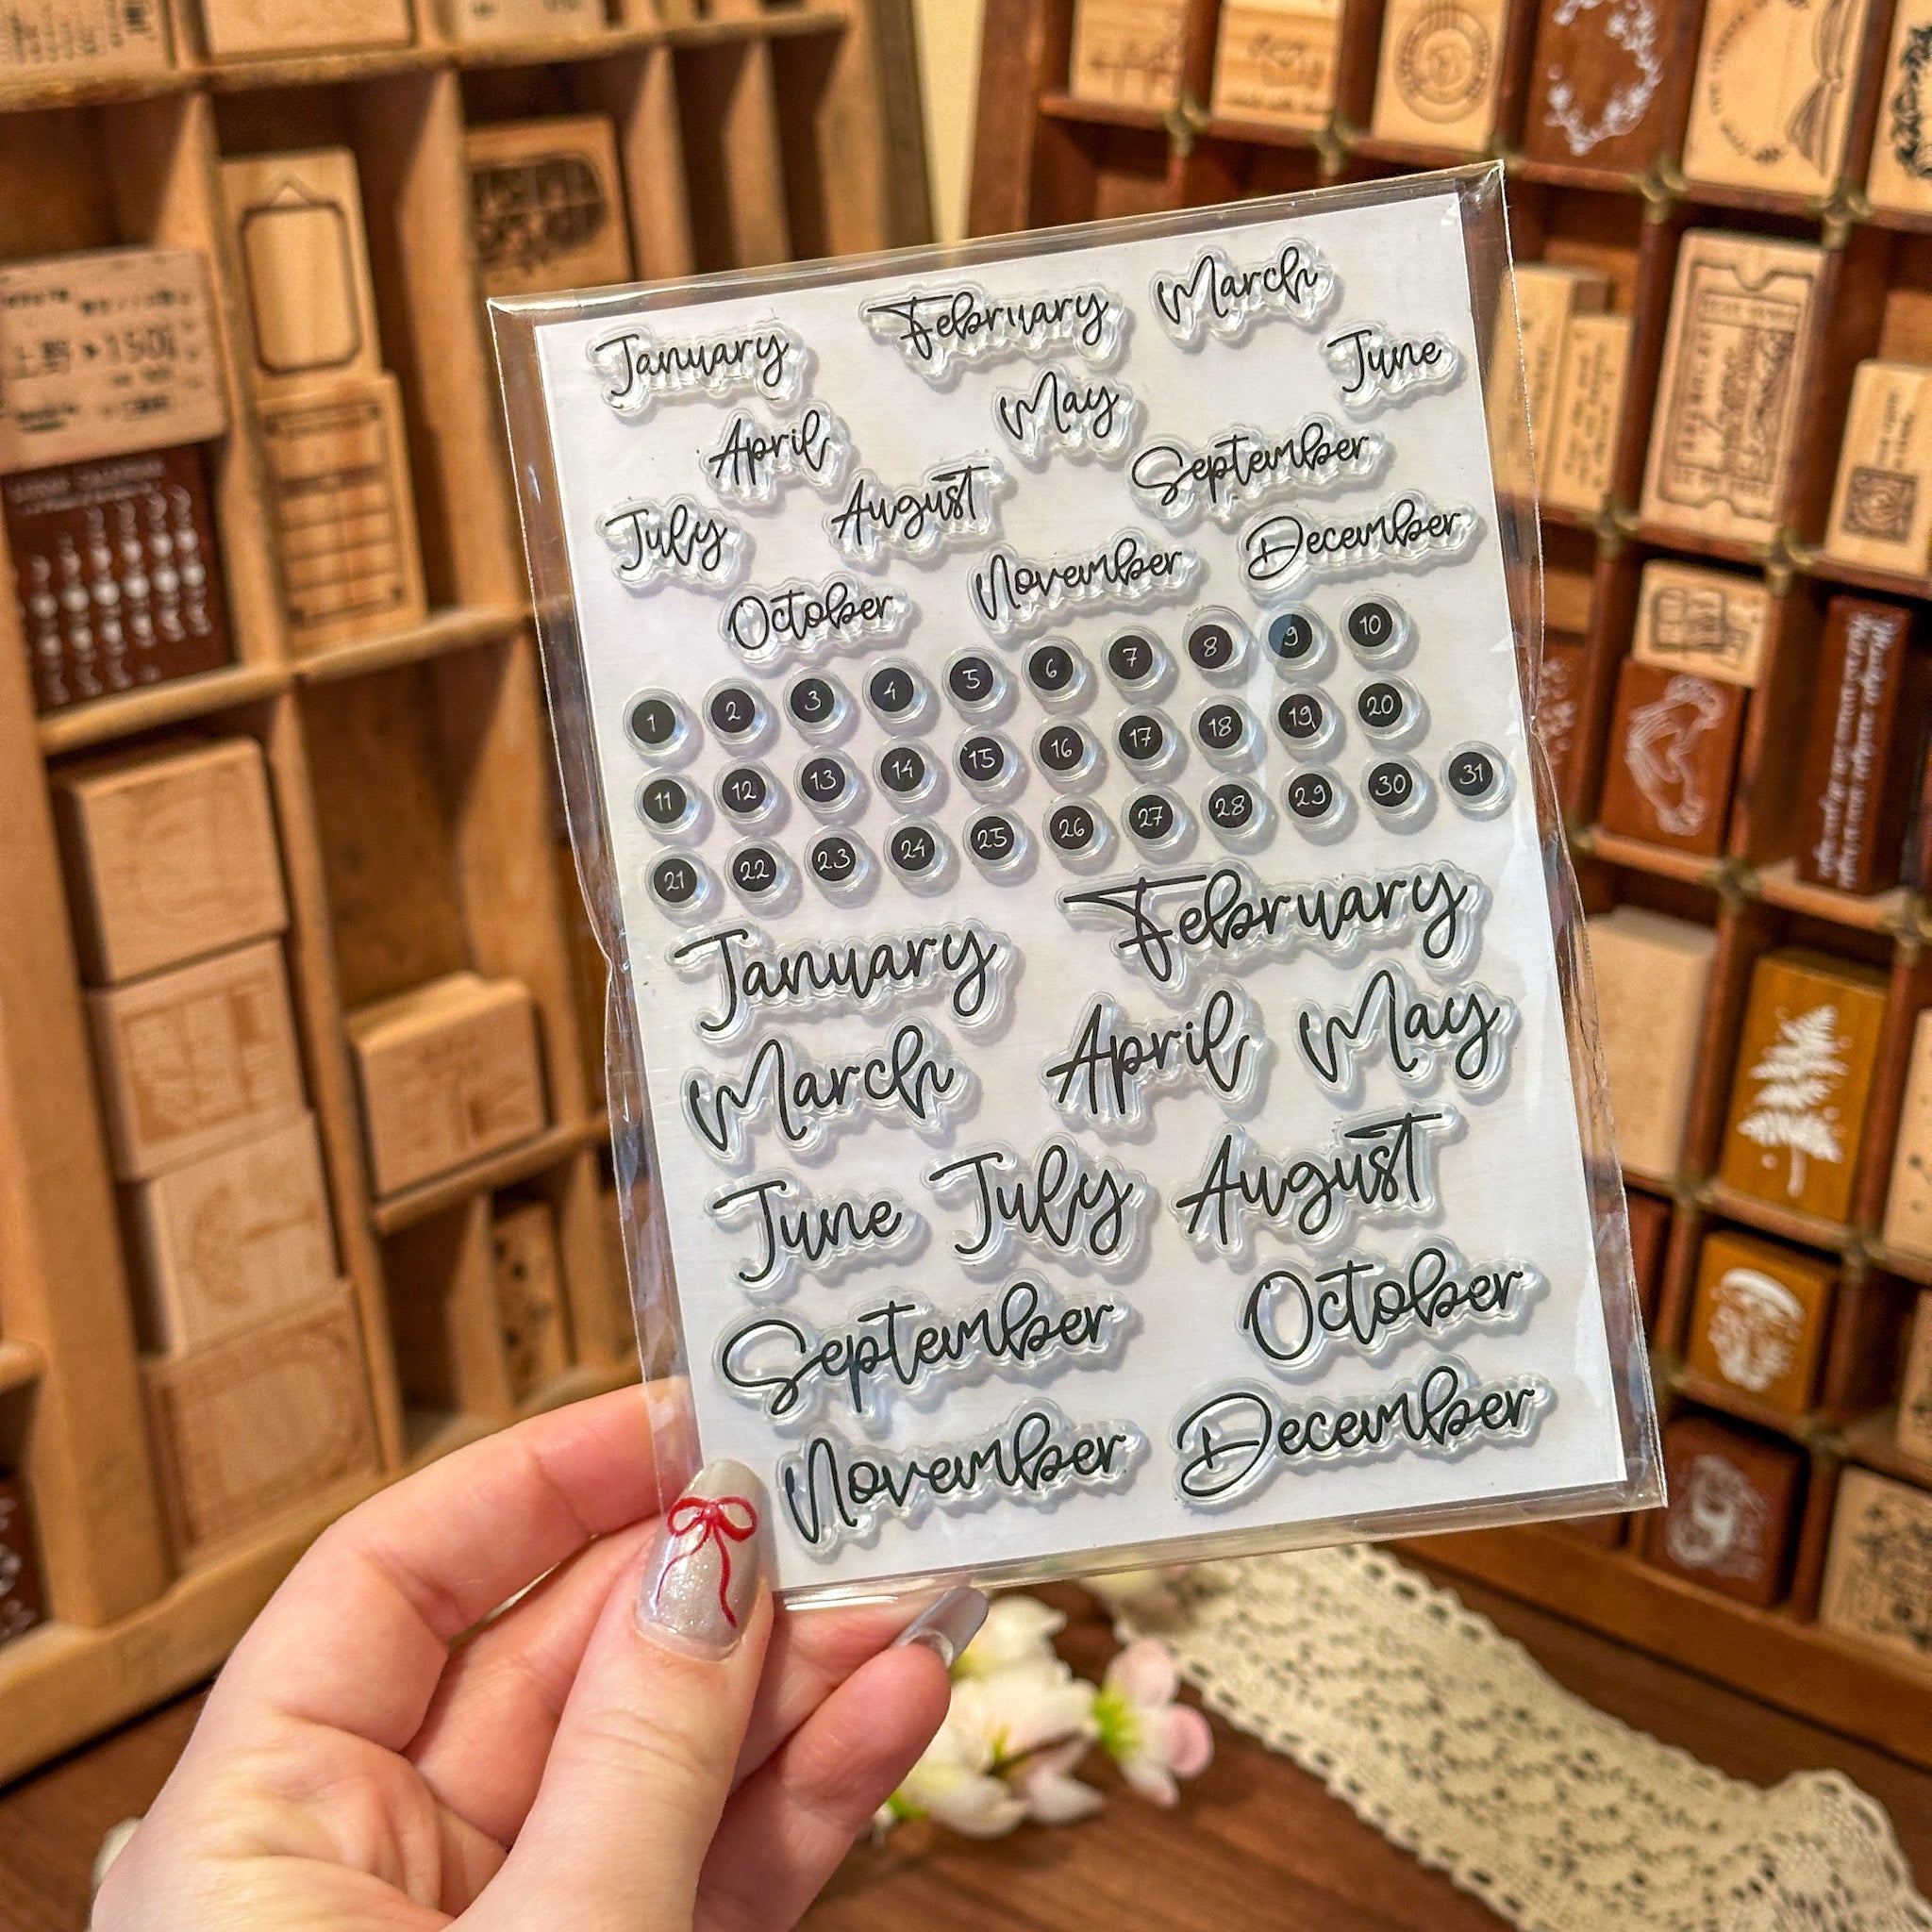 January February March
April May June
July August September
October November December
1 2 3 4 5 6 7 8 9 10
11 12 13 14 15 16 17 18 19 20
21 22 23 24 25 26 27 28 29 30 31
January February
March April May
June July August
September October
November December
上野 150